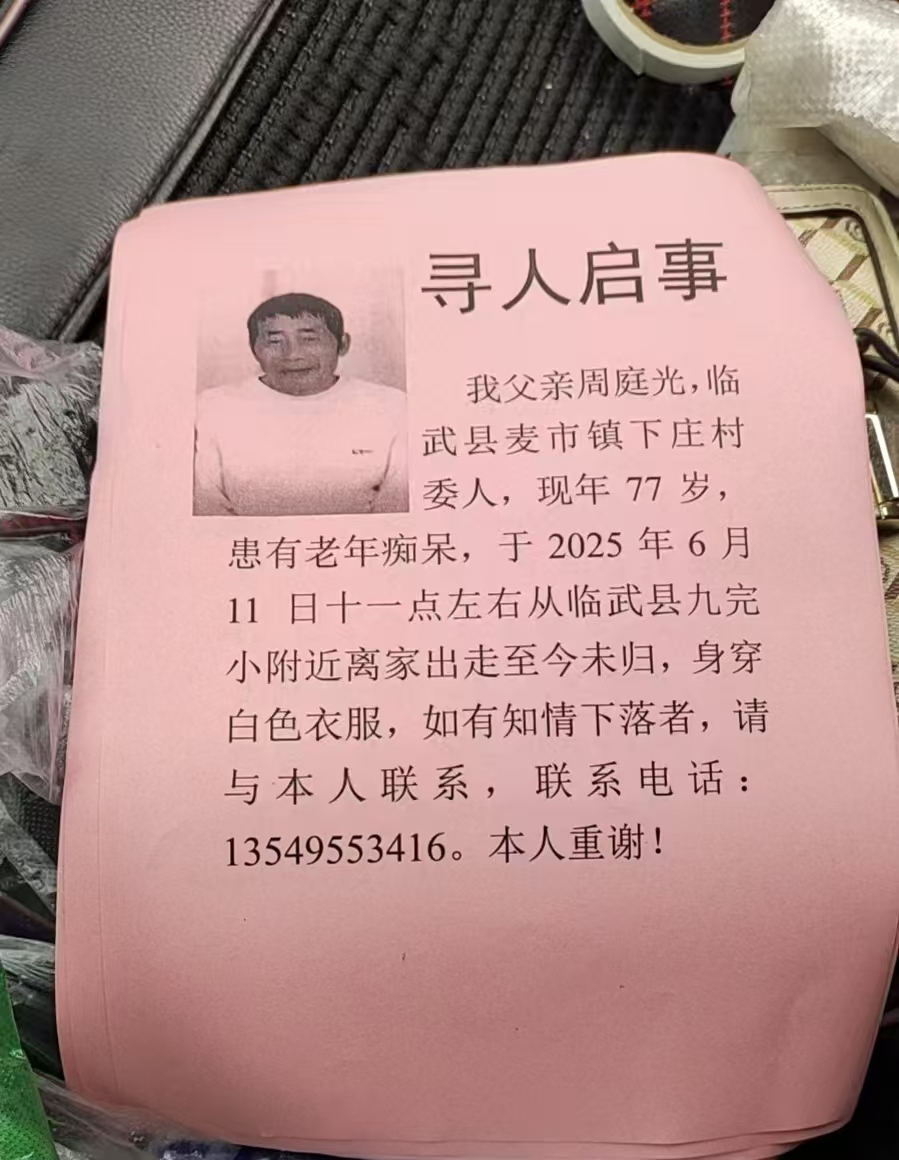 寻人启事
我父亲周庭光，临
武县麦市镇下庄村
委人，现年 77 岁，
患有老年痴呆，于 2025 年 6 月
11 日十一点左右从临武县九完
小附近离家出走至今未归，身穿
白色衣服，如有知情下落者，请
与本人联系，联系电话：
13549553416。本人重谢！